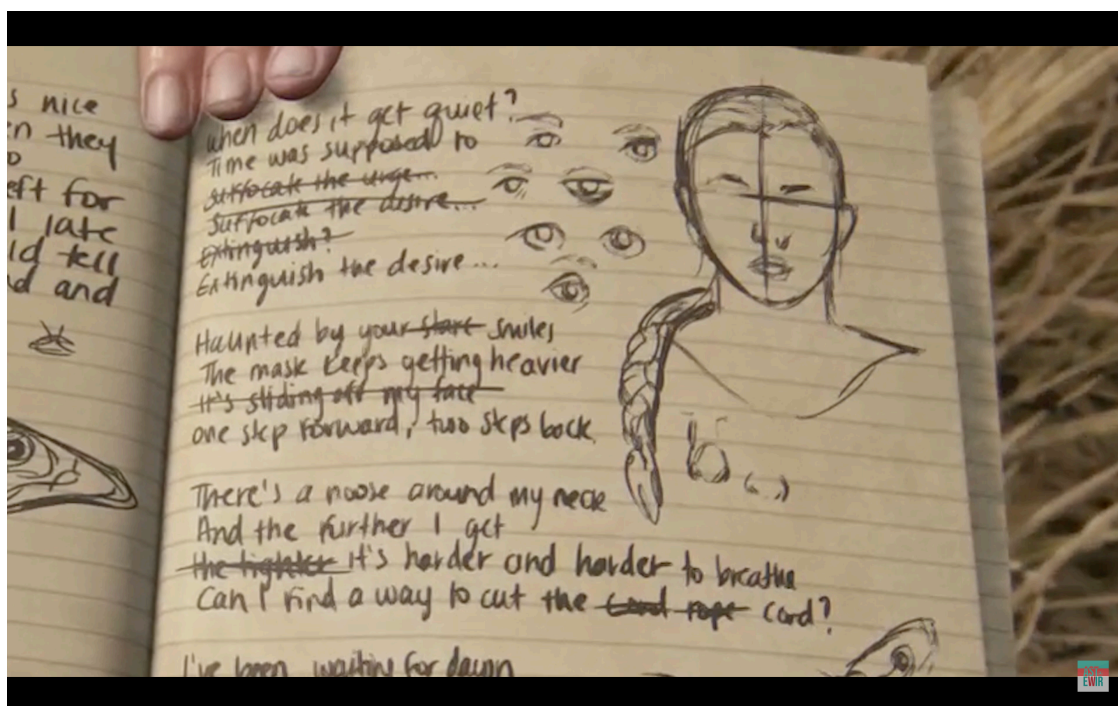 s nice
n they
o
eft for
l late
ld tell
d and
When does it get quiet?
Time was supposed to
Suffocate the urge...
Suffocate the desire...
Extinguish?
Extinguish the desire...
Haunted by your stare smiles
The mask keeps getting heavier
It's sliding off my face
one step forward, two steps back
There's a noose around my neck
And the further I get
the tighter it's harder and harder to breathe
Can I find a way to cut the cord rope cord?
I've been waiting for dawn
EWIR